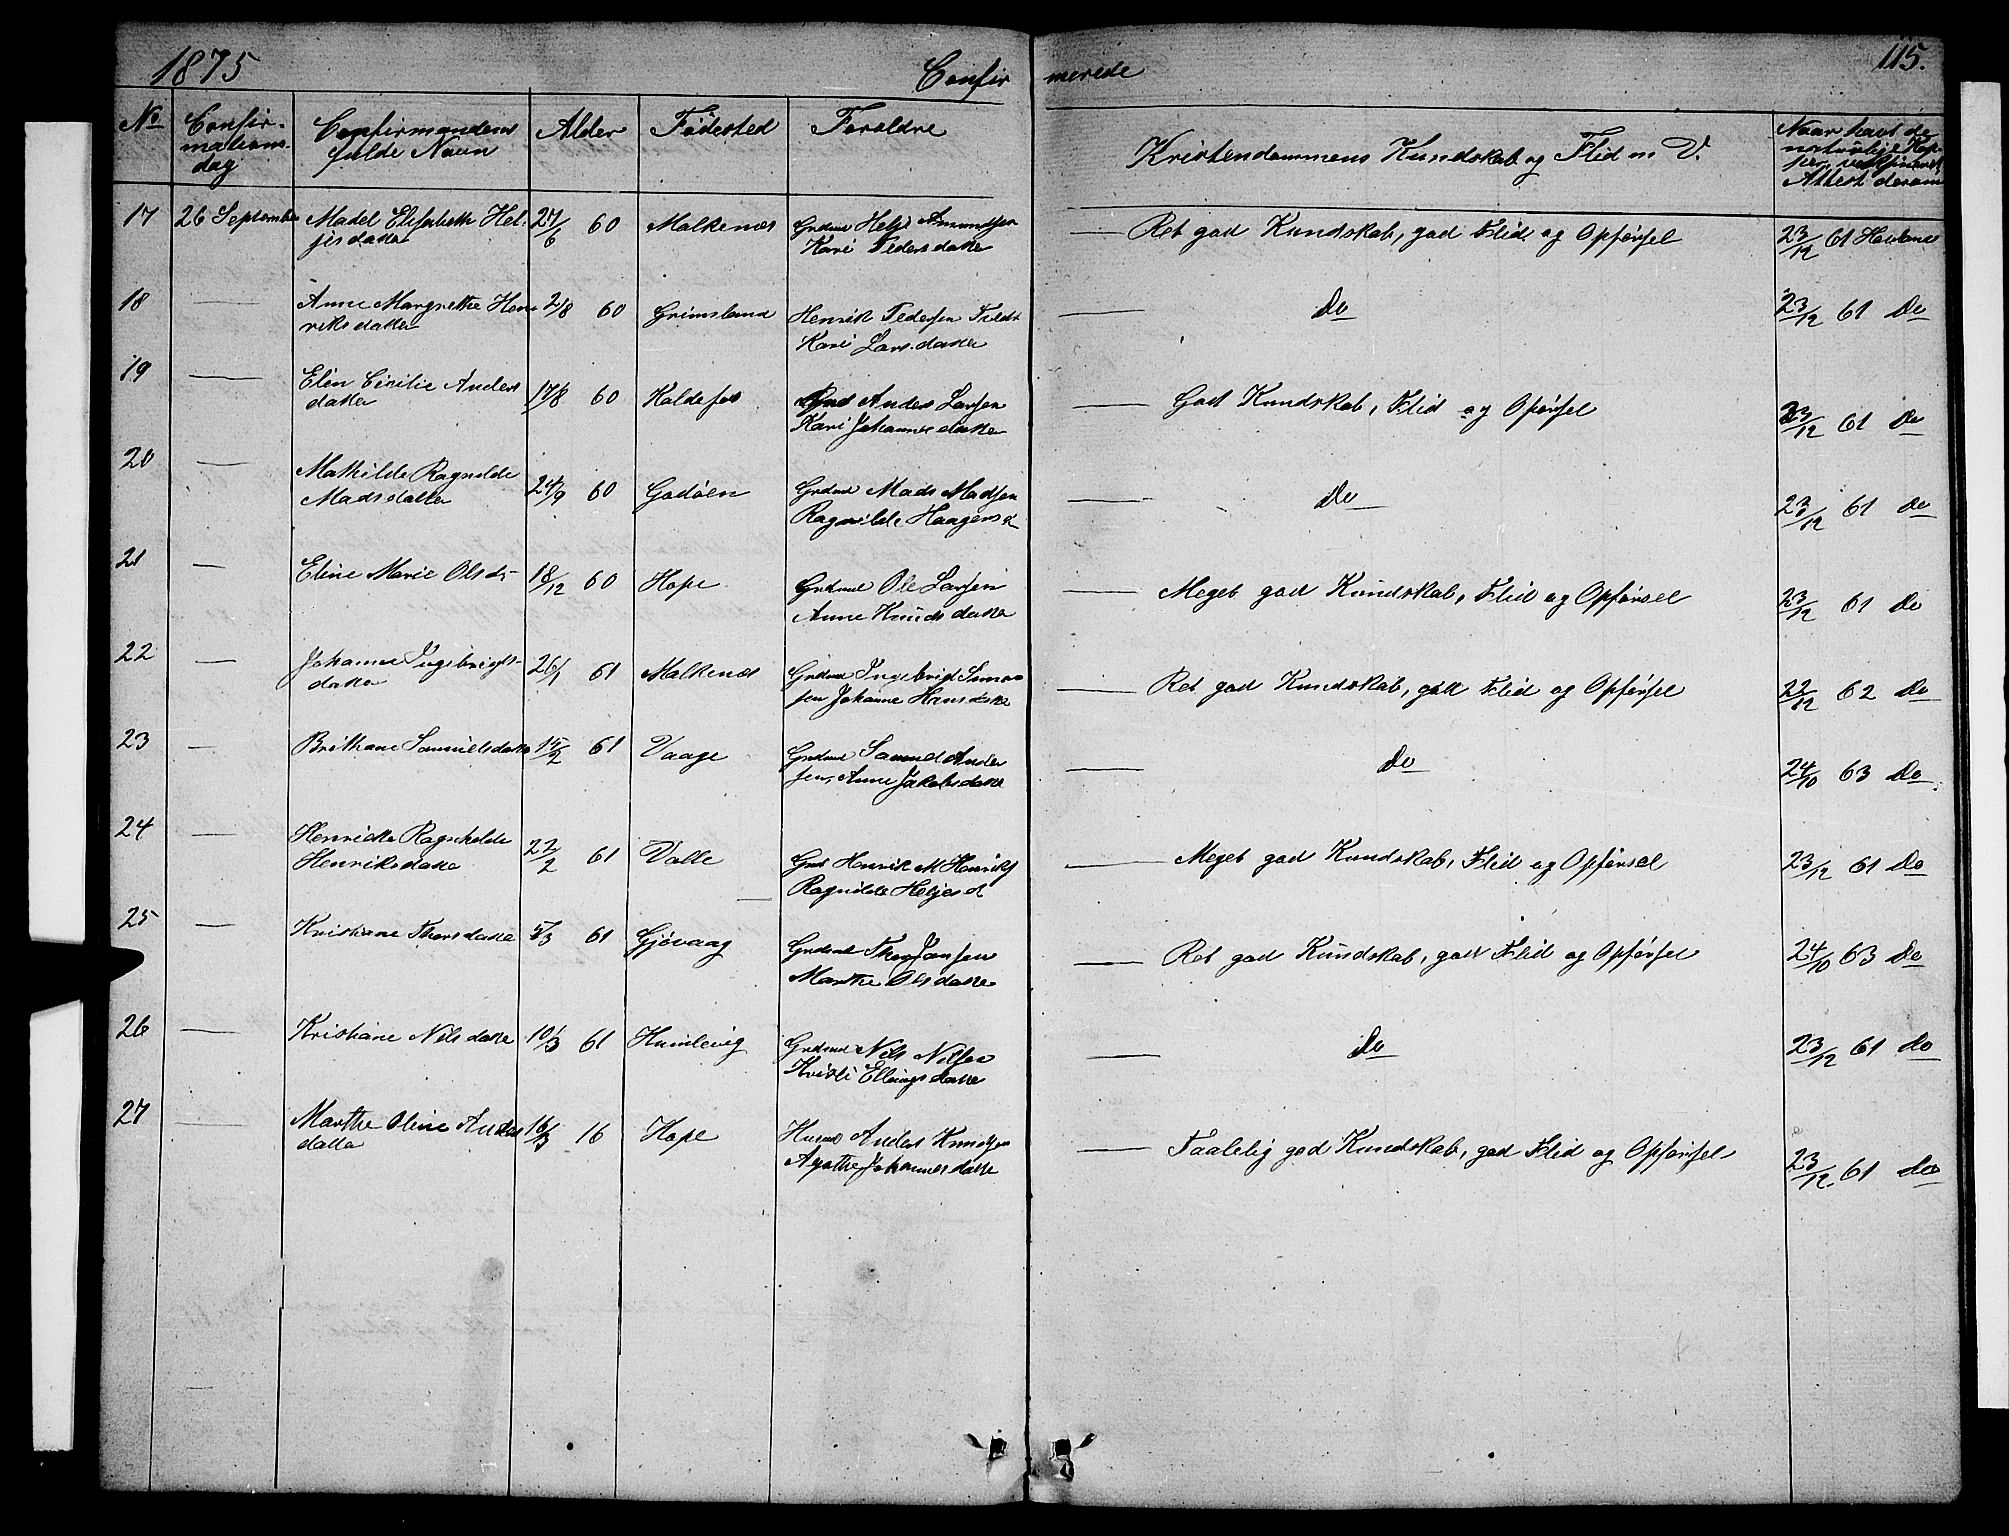 1875 Confirmerede 115.
No Confirmationsdag Confirmandens fulde Navn Alder Fødested Forældre Kristendommens Kundskab og Flid m V. Naar havt de naturlige Kopper, Attest derom
17 26 September Madel Elisabeth Heljesdatter 27/6 60 Malkenæs Grdmd Helje Amundsen Kari Pedersdatter — Ret god Kundskab, god Flid og Opførsel 23/12 61
18 — Anne Margrethe Henriksdatter 21/8 60 Grimsland Henrik Pedersen Kari Larsdatter — Do 23/12 61 Do
19 — Elen Cicilie Andersdatter 17/8 60 Koldefos Anders Larsen Kari Johannesdatter — God Kundskab, Flid og Opførsel 23/12 61 Do
20 — Mathilde Ragnilde Madsdatter 24/9 60 Godøen Grdmd Mads Madsen Ragnilde Haagensd — Do 23/12 61 Do
21 — Eline Marie Olsd- 18/12 60 Hope Grdmd Ole Larsen Anne Knudsdatter — Meget god Kundskab, Flid og Opførsel 23/12 61 Do
22 — Johanne Ingebrigtsdatter 26/1 61 Malkenæs Grdmd Ingebrigt Simonsen Johanne Hansdatter — Ret god Kundskab, god Flid og Opførsel 22/12 62 Do
23 — Brithane Samuelsdatter 15/2 61 Vaage Grdmd Samuel Andersen, Anne Jakobsdatter — Do 24/10 63 Do
24 — Henrikka Ragnhilde Henriksdatter 22/2 61 Valle Grd Henrik M Henriks Ragnilde Heljesd — Meget god Kundskab, Flid og Opførsel 23/12 61 Do
25 — Kristiane Thorsdatter 5/3 61 Gjøvaag Grdmd Thor Jansen Marthe Olsdatter — Ret god Kundskab, god Flid og Opførsel 24/10 63 Do
26 — Kristiane Nilsdatter 10/3 61 Humlevig Grdmd Nils Nilsen Kristi Ellingsdatter — Do 23/12 61 Do
27 — Marthe Oline Andersdatter 16/3 16 Hope Husmd Anders Knudsen Agathe Johannesdatter — Taalelig god Kundskab, god Flid og Opførsel 23/12 61 Do